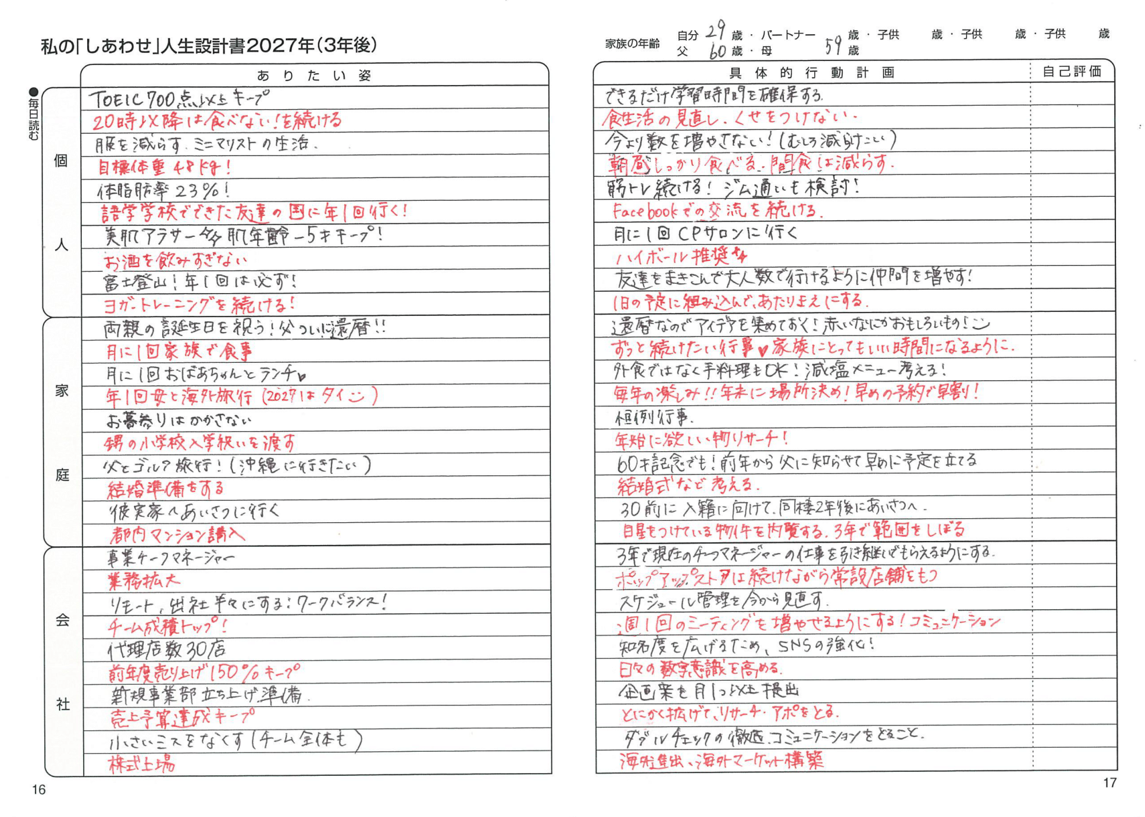 私の「しあわせ」人生設計書2027年(3年後)
●毎日読む
ありたい姿
個人
TOEIC700点以上キープ
20時以降は食べない!を続ける
服を減らす ミニマリストの生活.
目標体重48kg!
体脂肪率23%!
語学学校でできた友達の国に年1回行く!
美肌アラサー 肌年齢-5才キープ!
お酒を飲みすぎない
富士登山!年1回は必ず!
ヨガ・トレーニングを続ける!
家庭
両親の誕生日を祝う!父ついに還暦!!
月に1回家族で食事
月に1回おばあちゃんとランチ♥
年1回母と海外旅行(2027はタイ)
お墓参りはかかさない
甥の小学校入学祝いを渡す
父とゴルフ旅行!(沖縄に行きたい)
結婚準備をする
彼実家へあいさつに行く
都内マンション購入
会社
事業チーフマネージャー
業務拡大
リモート,出社半々にする:ワークバランス!
チーム成積トップ!
代理店数30店
前年度売り上げ150%キープ
新規事業部立ち上げ準備.
売上予算達成キープ
小さいミスをなくす(チーム全体も)
株式上場
16
家族の年齢 自分 29歳・パートナー 歳・子供 歳・子供 歳・子供 歳
父 60歳・母 59歳
具体的行動計画 自己評価
できるだけ学習時間を確保する.
食生活の見直し.くせをつけない.
今より数を増やさない!(むしろ減らすけこい)
朝昼しっかり食べる.間食は減らす.
筋トレ続ける!ジム通いも検討!
Facebookでの交流を続ける.
月に1回CPサロンに行く
ハイボール推奨
友達をまきこんで大人数で行けるように仲間を増やす!
1日の予定に組み込んで,あたりまえにする.
還暦なのでアイデアを集めておく!赤いなにかおもしろいもの!
ずっと続けたい行事♥家族にとってもいい時間になるように.
外食ではなく手料理もOK!減塩メニュー考える!
毎年の楽しみ!!年末に場所決め!早めの予約で早割!
恒例行事.
年始に欲しい物リサーチ!
60才記念でも!前年から父に知らせて早めに予定を立てる
結婚式など考える.
30前に入籍に向けて.同棲2年後にあいさつへ.
目星をつけている物件を内覧する.3年で範囲をしぼる
3年で現在のチーフマネージャーの仕事を引き継いでもらえるようにする.
ポップアップストアは続けながら常設店舗をもつ
スケジュール管理を今から見直す.
週1回のミーティングを増やせるようにする!コミュニケーション
知名度を広げるため、SNSの強化!
日々の数字意識を高める.
企画案を月1つ以上提出
とにかく拡げて,リサーチ・アポをとる.
ダブルチェックの徹底.コミュニケーションをとること.
海外進出、海外マーケット構築
17